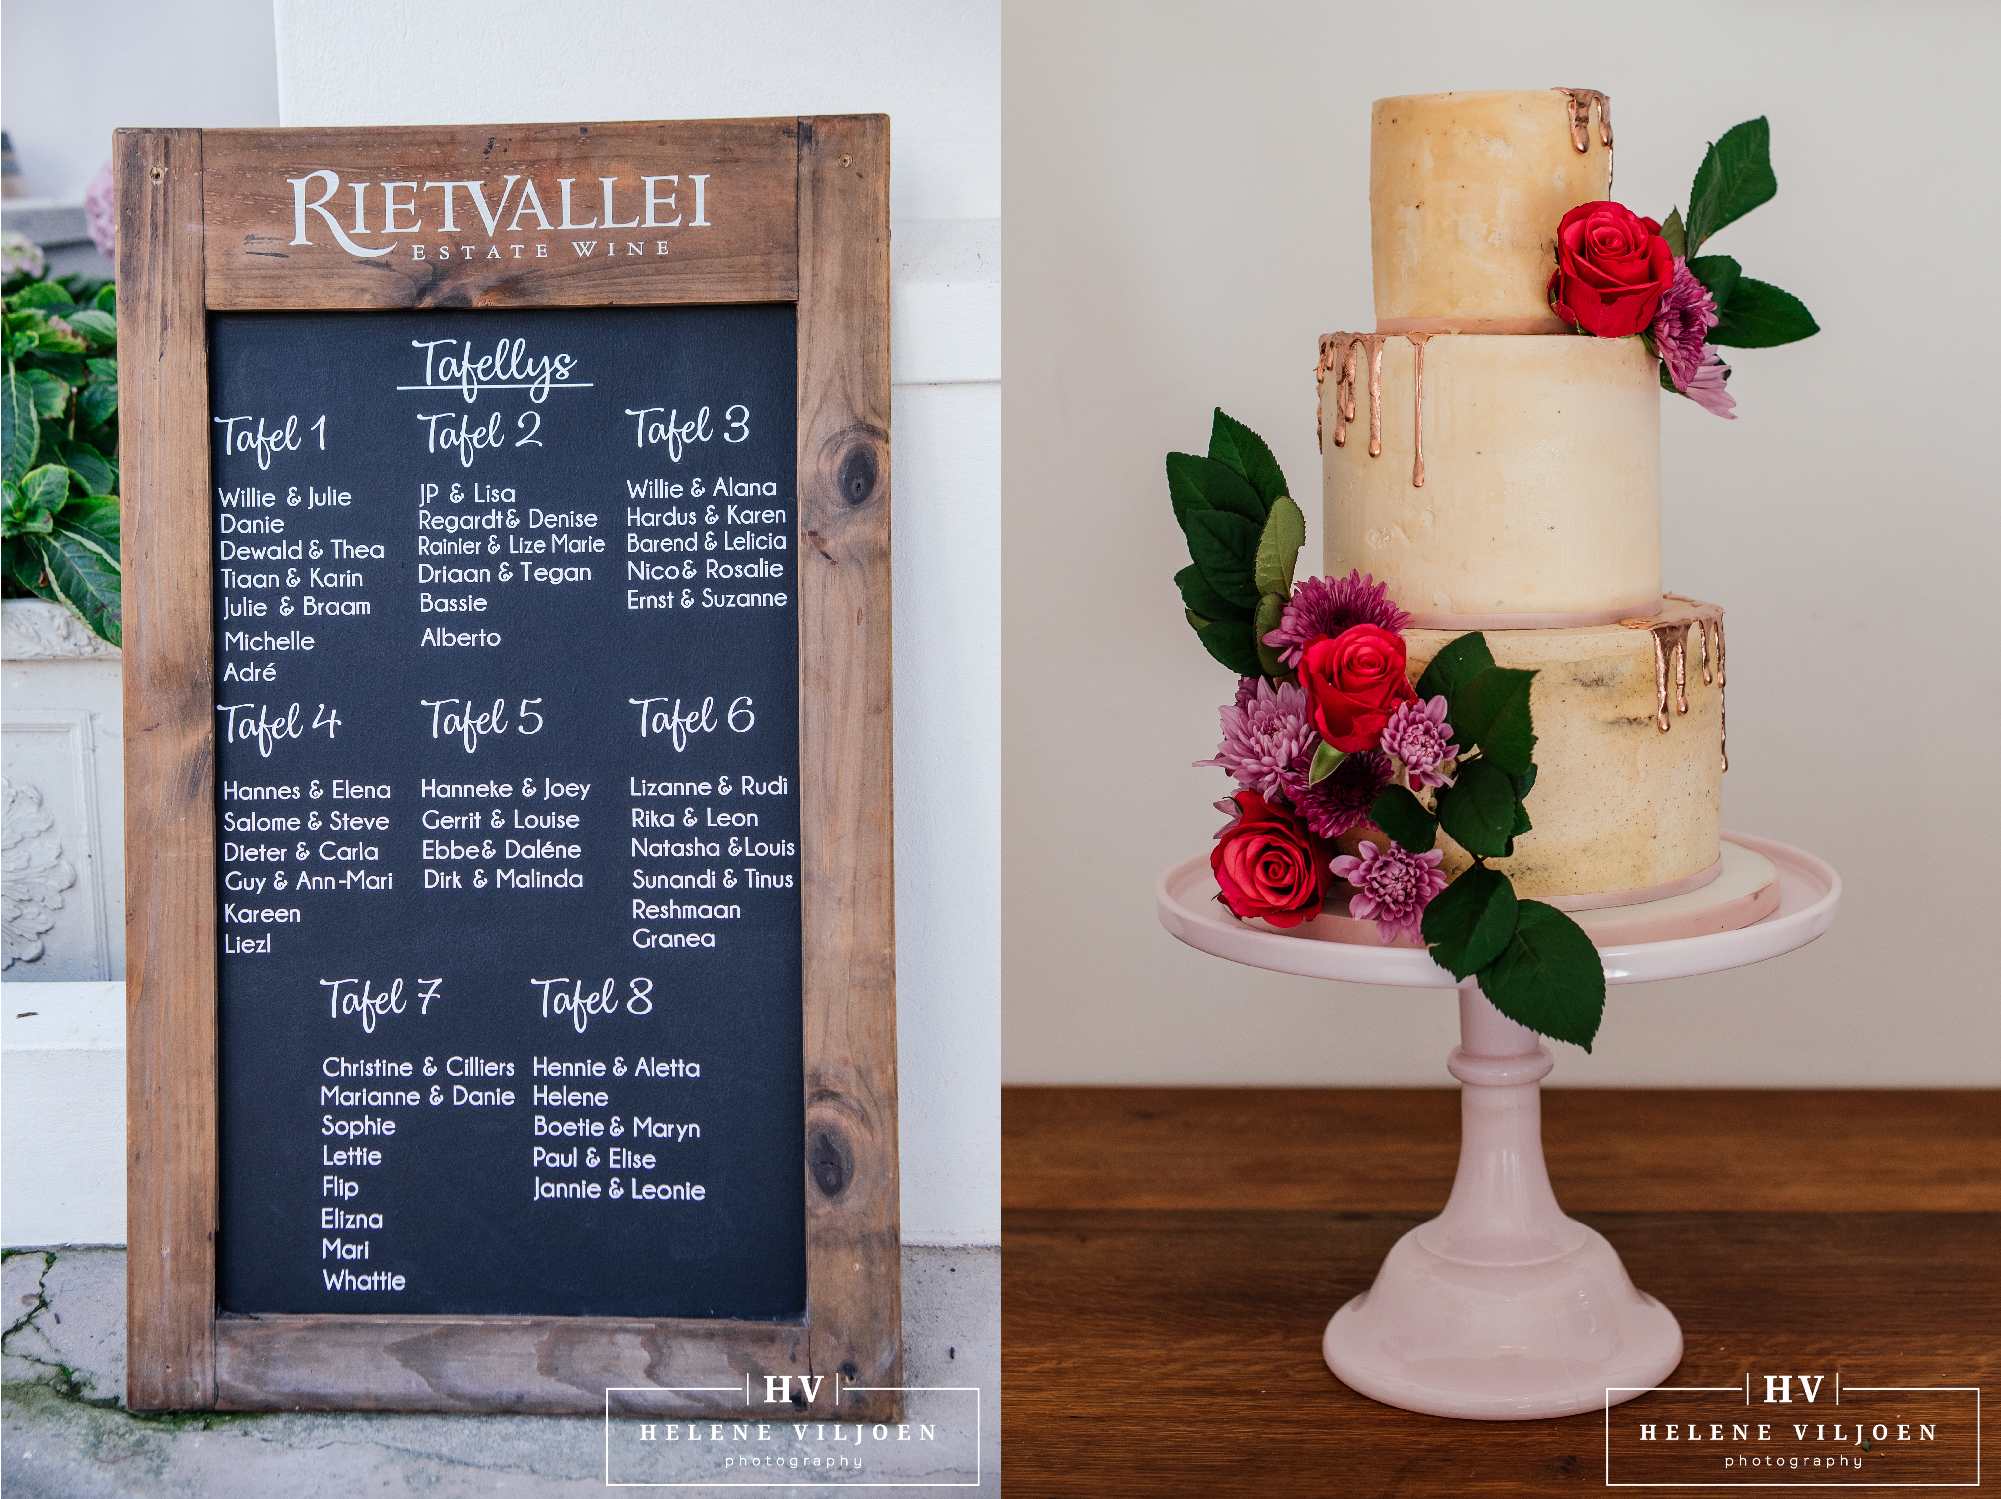 RIETVALLEI
ESTATE WINE
Tafellys
Tafel 1
Willie & Julie
Danie
Dewald & Thea
Tiaan & Karin
Julie & Braam
Michelle
Adré
Tafel 2
JP & Lisa
Regardt & Denise
Rainier & Lize Marie
Driaan & Tegan
Bassie
Alberto
Tafel 3
Willie & Alana
Hardus & Karen
Barend & Lelicia
Nico & Rosalie
Ernst & Suzanne
Tafel 4
Hannes & Elena
Salome & Steve
Dieter & Carla
Guy & Ann-Mari
Kareen
Liezl
Tafel 5
Hanneke & Joey
Gerrit & Louise
Ebbe & Daléne
Dirk & Malinda
Tafel 6
Lizanne & Rudi
Rika & Leon
Natasha & Louis
Sunandi & Tinus
Reshmaan
Granea
Tafel 7
Christine & Cilliers
Marianne & Danie
Sophie
Lettie
Flip
Elizna
Mari
Whattie
Tafel 8
Hennie & Aletta
Helene
Boetie & Maryn
Paul & Elise
Jannie & Leonie
HV
HELENE VILJOEN
photography
HV
HELENE VILJOEN
photography